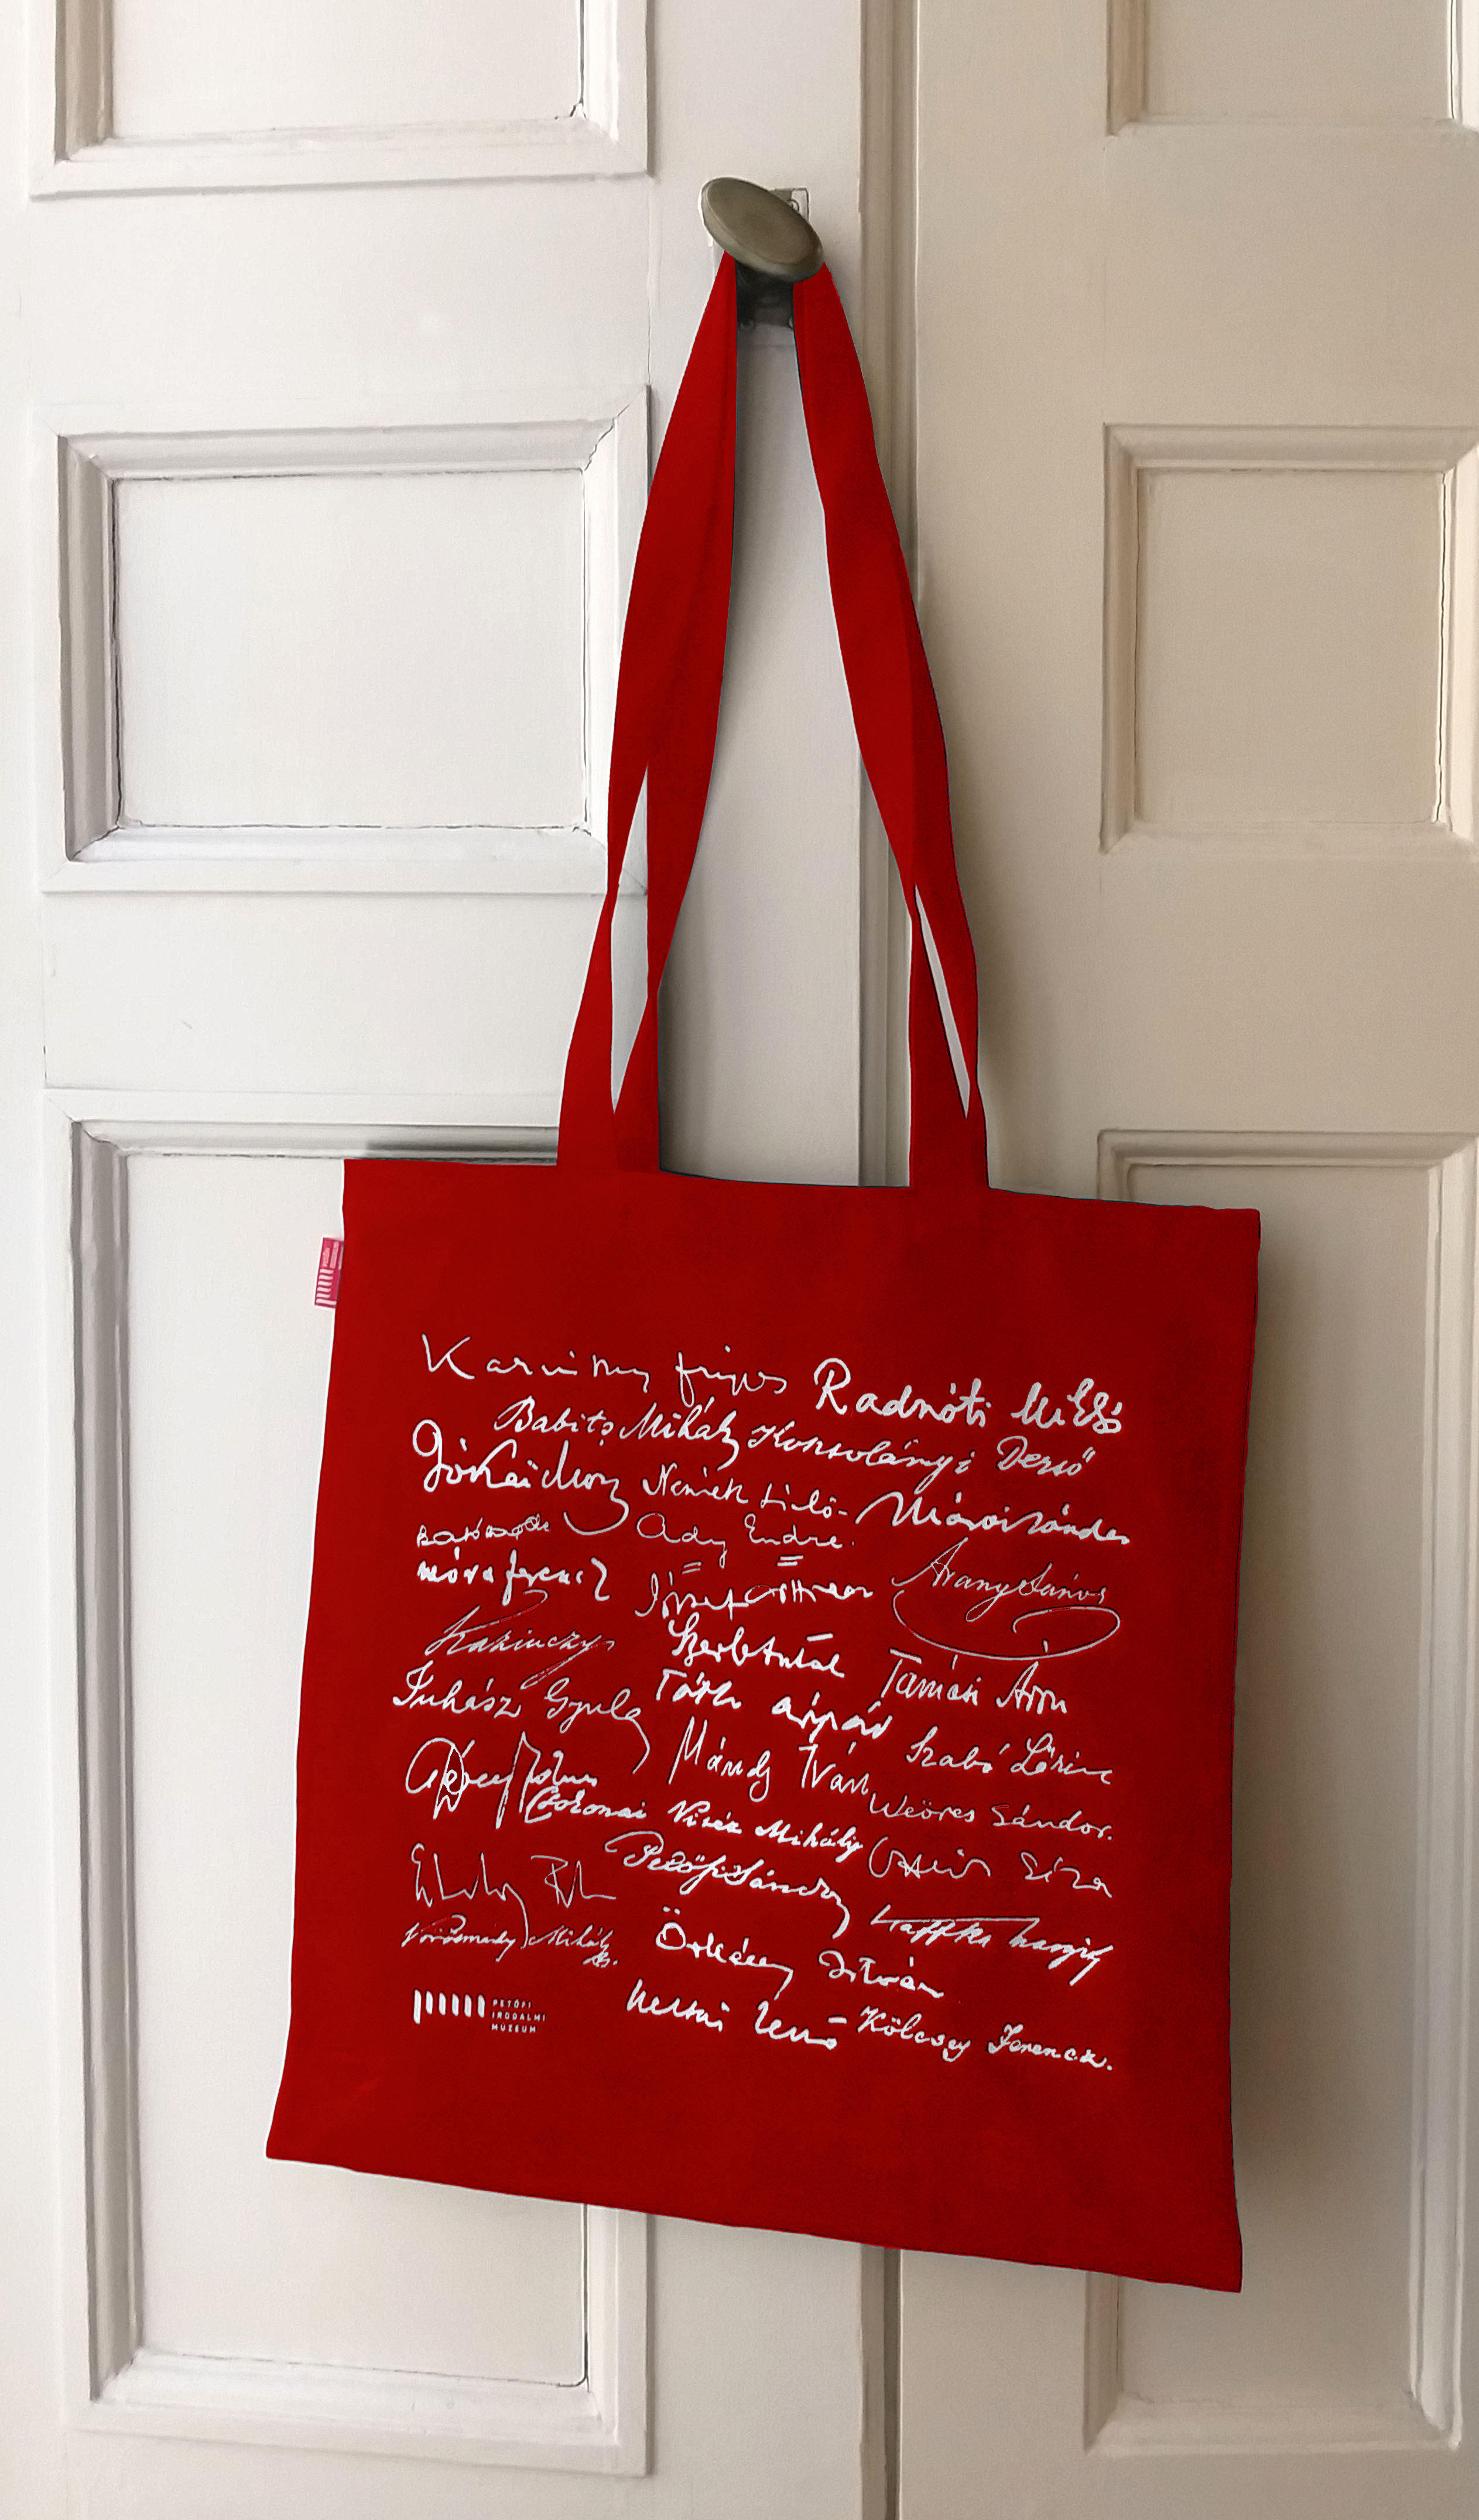 Karinthy Frigyes Radnóti Miklós
Babits Mihály Kosztolányi Dezső
Jókai Mór Németh László Márai Sándor
Ady Endre.
Móra Ferencz József Attila Arany János
Kazinczy Szerb Antal Tamási Áron
Juhász Gyula Tóth Árpád Szabó Lőrinc
Mándy Iván Weöres Sándor.
Csokonai Vitéz Mihály Géza
Petőfi Sándor Kaffka Margit
Vörösmarty Mihály Örkény István
Heltai Jenő Kölcsey Ferencz.
PETŐFI
IRODALMI
MÚZEUM